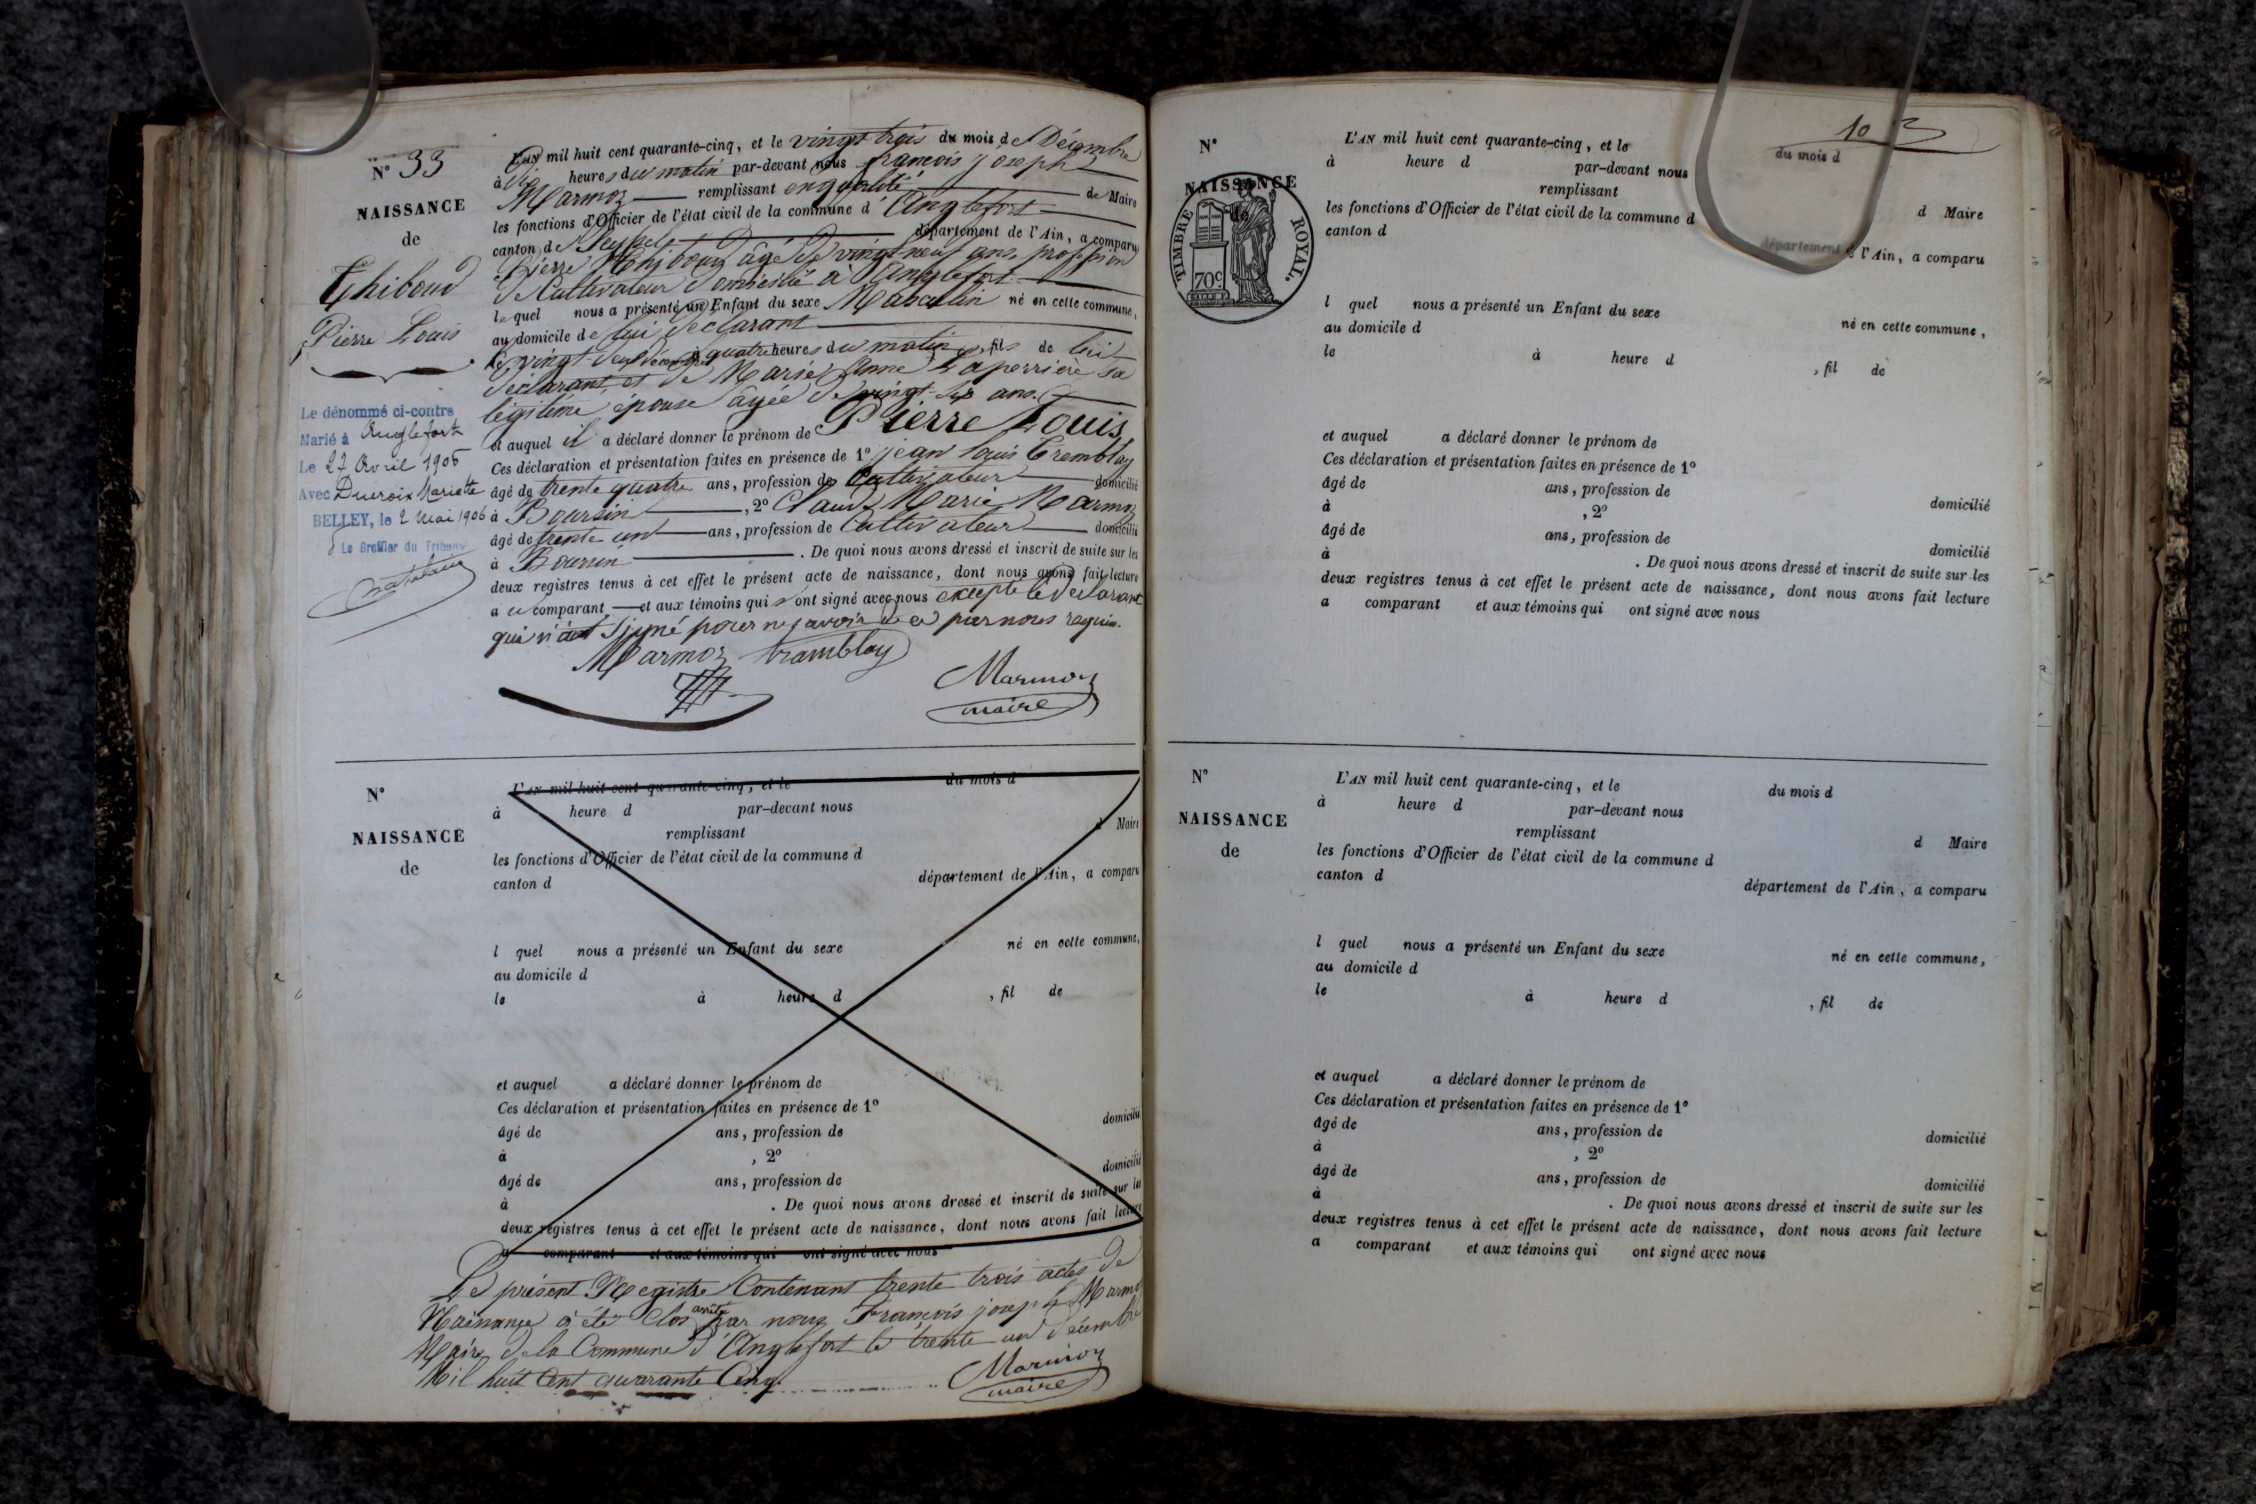 N° 33
NAISSANCE
de
Thiboud
Pierre Louis
Le dénommé ci-contre
Marié à Anglefort
Le 27 Avril 1906
Avec Ducroix Mariette
BELLEY, le 2 Mai 1906
Le Greffier du Tribunal
L'AN mil huit cent quarante-cinq, et le vingt trois du mois de Décembre
à dix heures du matin par-devant nous françois joseph
Marmoz remplissant en qualité de Maire
les fonctions d'Officier de l'état civil de la commune d'Anglefort
canton de Seyssel département de l'Ain, a comparu
Pierre Thiboud âgé de vingt neuf ans profession
de Cultivateur domicilié à Anglefort
lequel nous a présenté un Enfant du sexe Masculin né en cette commune,
au domicile de lui déclarant
le vingt deux décembre à quatre heures du matin, fils de lui
déclarant, et de Marie Anne Laperrière sa
légitime épouse âgée de vingt six ans.
et auquel il a déclaré donner le prénom de Pierre Louis,
Ces déclaration et présentation faites en présence de 1° jean louis Tremblay
âgé de trente quatre ans, profession de Cultivateur domicilié
à Boursin, 2° Claude Marie Marmoz
âgé de trente un ans, profession de Cultivateur domicilié
à Boursin. De quoi nous avons dressé et inscrit de suite sur les
deux registres tenus à cet effet le présent acte de naissance, dont nous avons fait lecture
a ce comparant et aux témoins qui ont signé avec nous excepté le déclarant
qui n'a signé pour ne savoir de ce par nous requis.
Marmoz tramblay
Marmoz
maire
N°
NAISSANCE
de
L'AN mil huit cent quarante-cinq, et le du mois d
à heure d par-devant nous
remplissant d Maire
les fonctions d'Officier de l'état civil de la commune d
canton d département de l'Ain, a comparu
l quel nous a présenté un Enfant du sexe né en cette commune,
au domicile d
le à heure d , fil de
et auquel a déclaré donner le prénom de
Ces déclaration et présentation faites en présence de 1°
âgé de ans, profession de domicilié
à , 2°
âgé de ans, profession de domicilié
à . De quoi nous avons dressé et inscrit de suite sur les
deux registres tenus à cet effet le présent acte de naissance, dont nous avons fait lecture
a comparant et aux témoins qui ont signé avec nous
Le présent Registre Contenant trente trois actes de
Naissance a été Clos arrêté par nous François joseph Marmoz
Maire de la Commune d'Anglefort le trente un Décembre
Mil huit Cent quarante Cinq.
Marmoz
maire
103
N°
NAISSANCE
de
TIMBRE ROYAL.
70c
L'AN mil huit cent quarante-cinq, et le du mois d
à heure d par-devant nous
remplissant d Maire
les fonctions d'Officier de l'état civil de la commune d
canton d département de l'Ain, a comparu
l quel nous a présenté un Enfant du sexe né en cette commune,
au domicile d
le à heure d , fil de
et auquel a déclaré donner le prénom de
Ces déclaration et présentation faites en présence de 1°
âgé de ans, profession de domicilié
à , 2°
âgé de ans, profession de domicilié
à . De quoi nous avons dressé et inscrit de suite sur les
deux registres tenus à cet effet le présent acte de naissance, dont nous avons fait lecture
a comparant et aux témoins qui ont signé avec nous
N°
NAISSANCE
de
L'AN mil huit cent quarante-cinq, et le du mois d
à heure d par-devant nous
remplissant d Maire
les fonctions d'Officier de l'état civil de la commune d
canton d département de l'Ain, a comparu
l quel nous a présenté un Enfant du sexe né en cette commune,
au domicile d
le à heure d , fil de
et auquel a déclaré donner le prénom de
Ces déclaration et présentation faites en présence de 1°
âgé de ans, profession de domicilié
à , 2°
âgé de ans, profession de domicilié
à . De quoi nous avons dressé et inscrit de suite sur les
deux registres tenus à cet effet le présent acte de naissance, dont nous avons fait lecture
a comparant et aux témoins qui ont signé avec nous